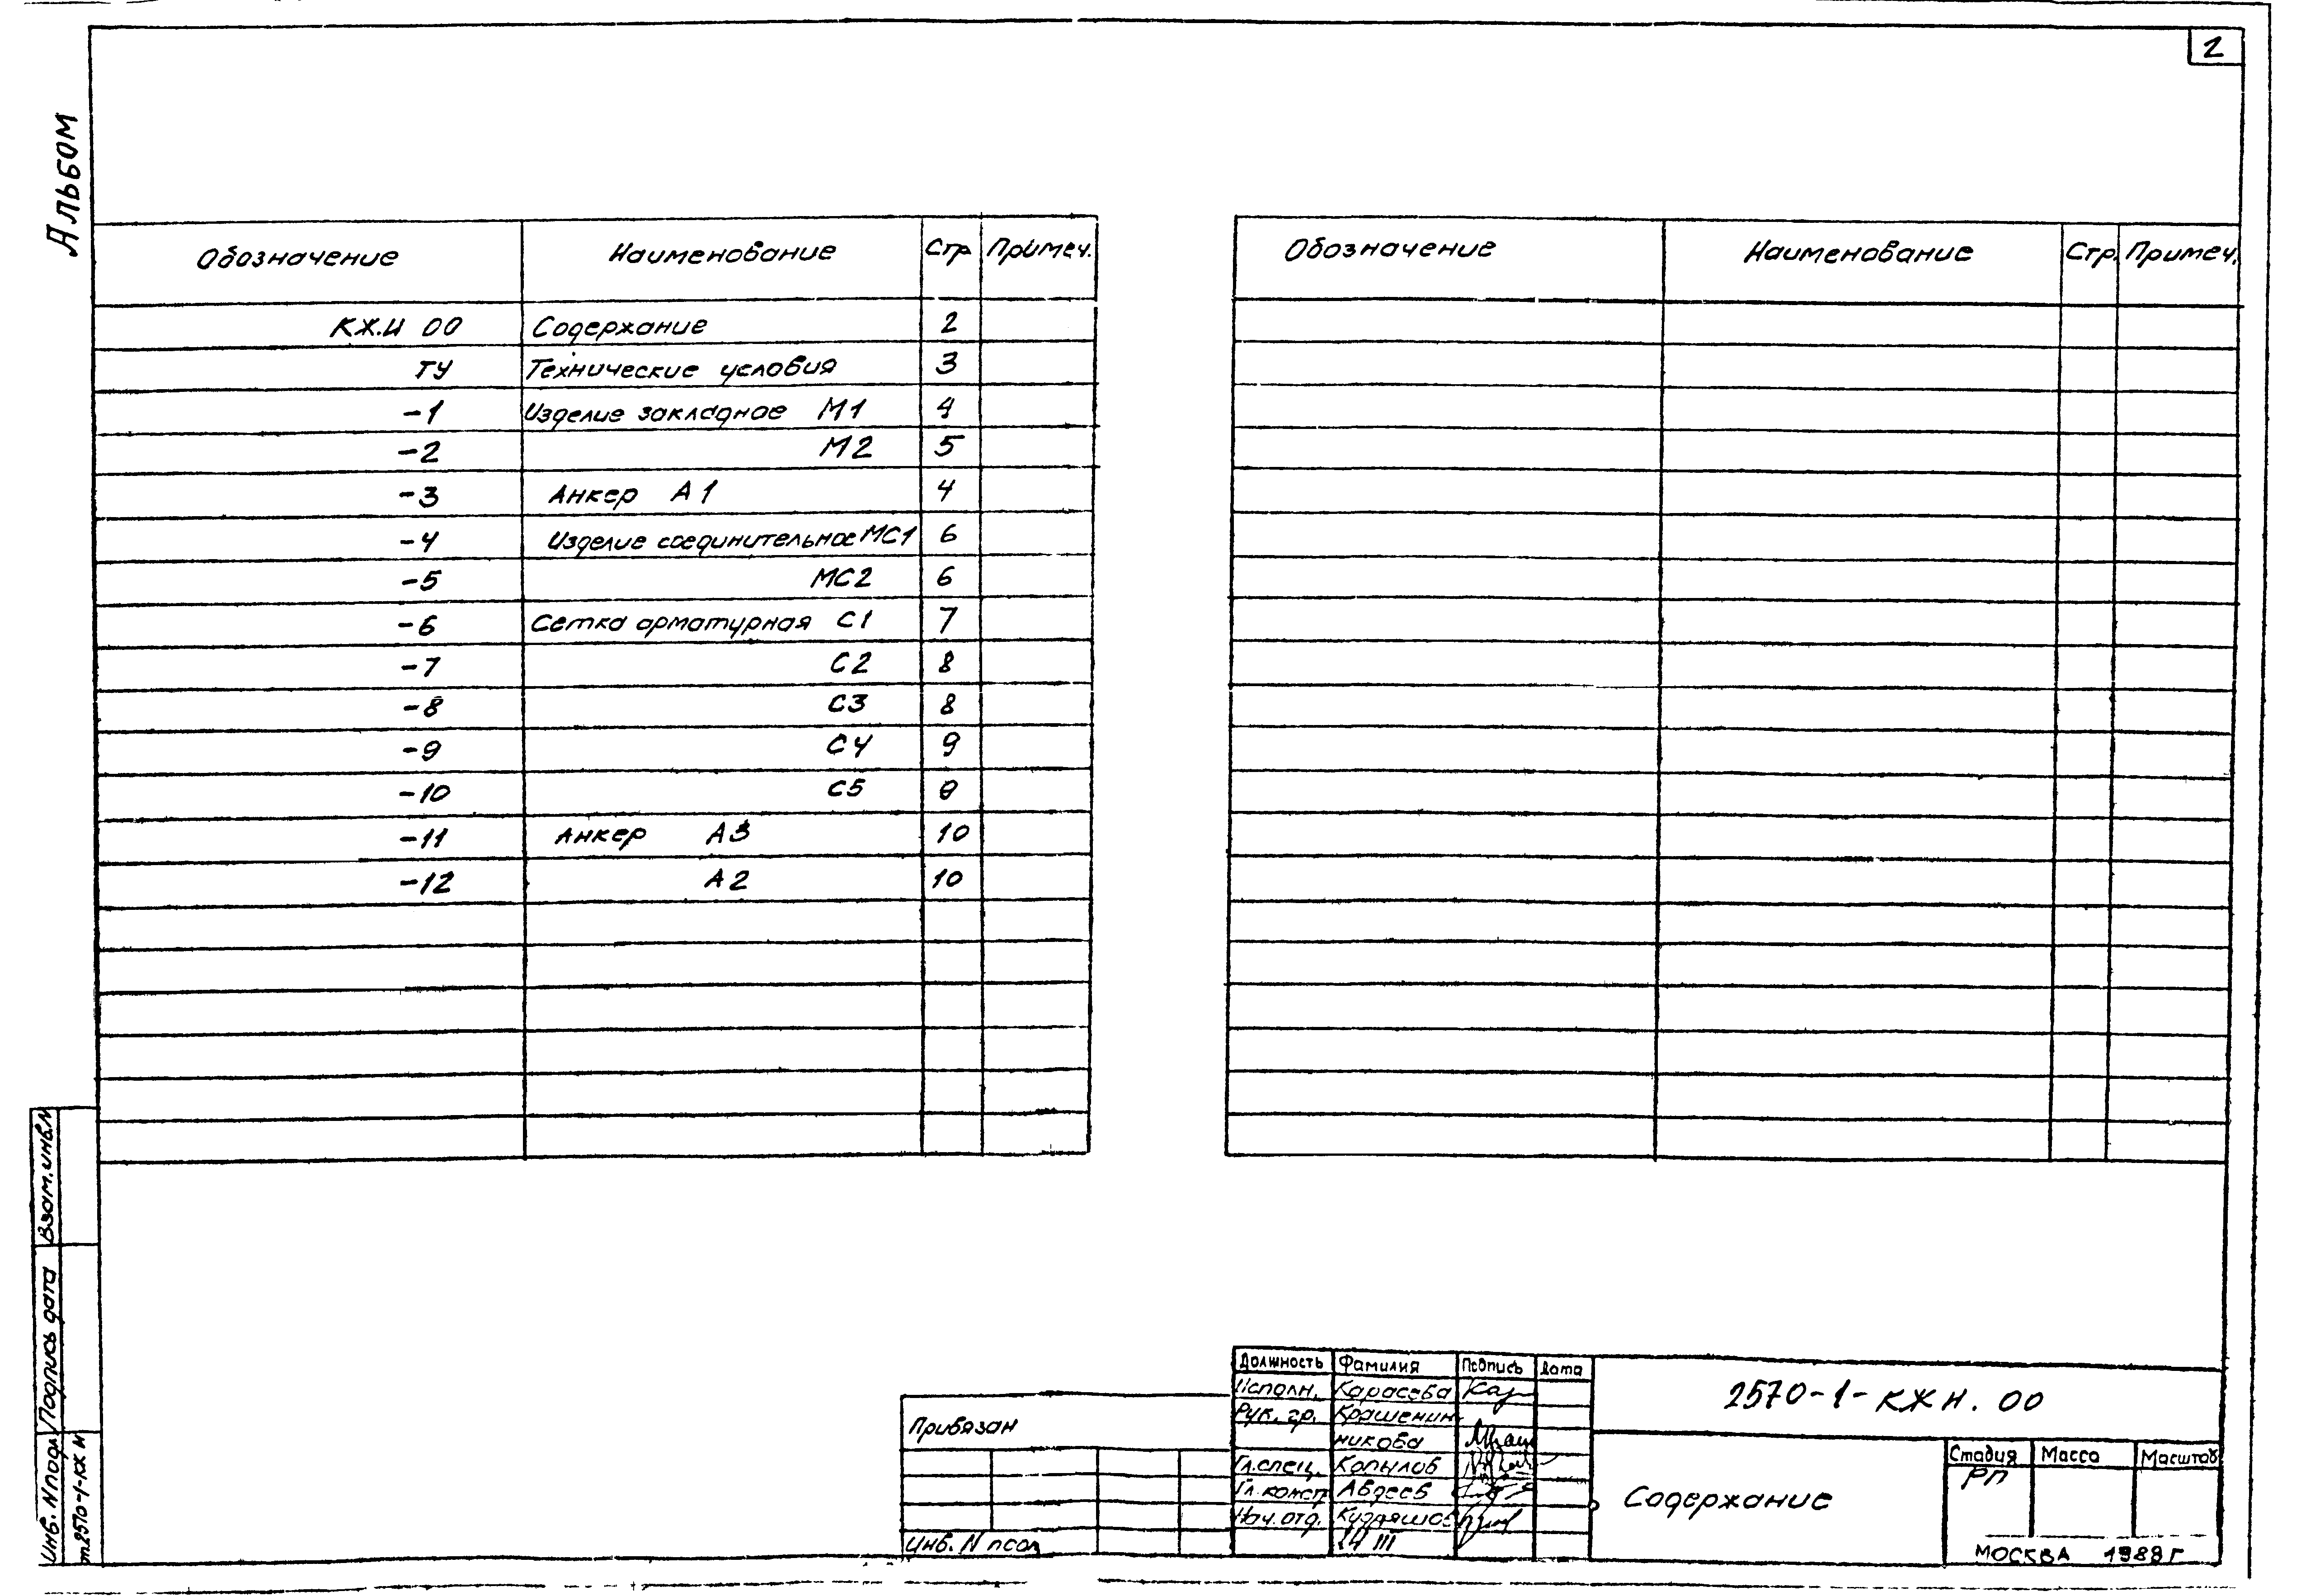 2
Альбом
Обозначение Наименование Стр Примеч.
КЖ.И 00 Содержание 2
ТУ Технические условия 3
-1 Изделие закладное М1 4
-2 М2 5
-3 Анкер А1 4
-4 Изделие соединительное МС1 6
-5 МС2 6
-6 Сетка арматурная С1 7
-7 С2 8
-8 С3 8
-9 С4 9
-10 С5 9
-11 Анкер А3 10
-12 А2 10
Обозначение Наименование Стр. Примеч.
Взам.инв.N
Подпись дата
Инв. N подл
т2570-1-КЖ И
Привязан
Инв. N подл
Должность Фамилия Подпись Дата
Исполн. Карасева
Рук. гр. Крашенин-
никова
Гл.спец. Копылов
Гл.конст Авдеев
Нач.отд.
2570-1-КЖ И. 00
Содержание
Стадия Масса Масштаб
РП
МОСКВА 1988г